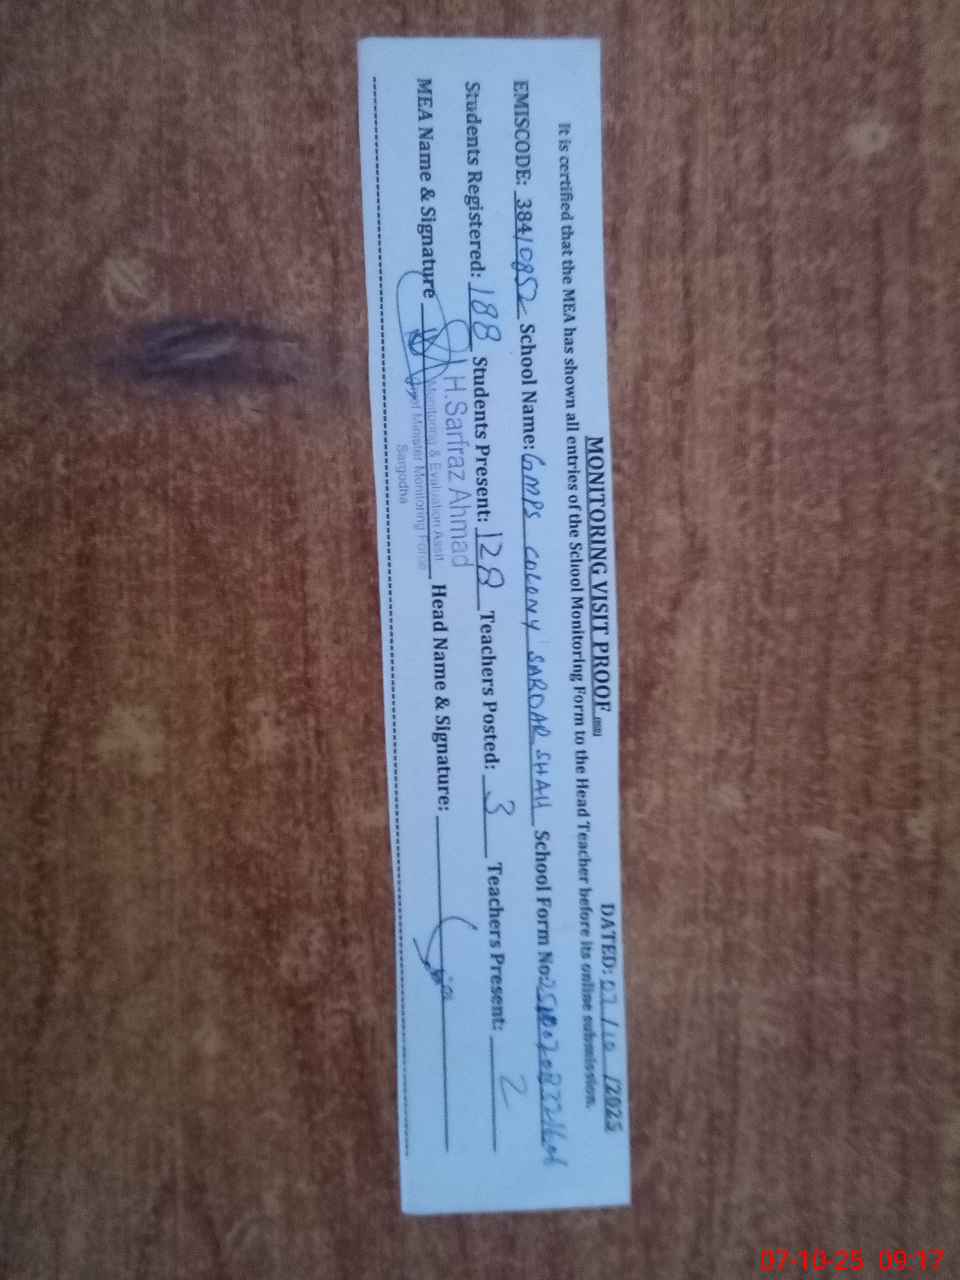 MONITORING VISIT PROOF
DATED: 07/10/2025
It is certified that the MEA has shown all entries of the School Monitoring Form to the Head Teacher before its online submission.
EMISCODE: 38410852 School Name: GMPS COLONY SARDAR SHAH School Form No:
Students Registered: 188 Students Present: 128 Teachers Posted: 3 Teachers Present: 2
MEA Name & Signature Head Name & Signature:
H.Sarfraz Ahmad
Monitoring & Evaluation Asstt
Chief Minister Monitoring Force
Sargodha
07-10-25 09:17